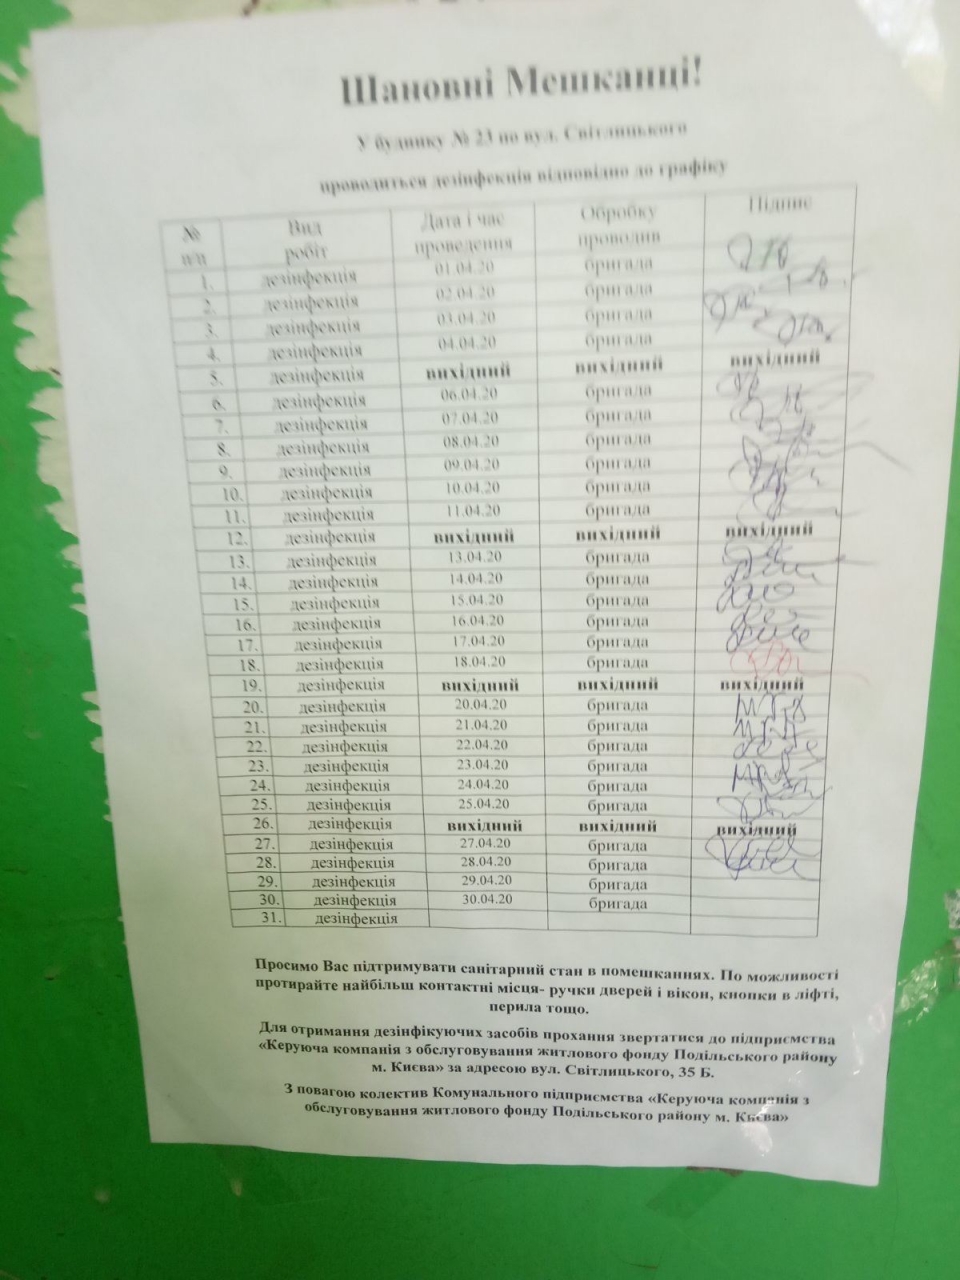 Шановні Мешканці!
У будинку № 23 по вул. Світлицького
проводиться дезінфекція відповідно до графіку
№ п/п Вид робіт Дата і час проведення Обробку проводив Підпис
1. дезінфекція 01.04.20 бригада
2. дезінфекція 02.04.20 бригада
3. дезінфекція 03.04.20 бригада
4. дезінфекція 04.04.20 бригада
5. дезінфекція вихідний вихідний вихідний
6. дезінфекція 06.04.20 бригада
7. дезінфекція 07.04.20 бригада
8. дезінфекція 08.04.20 бригада
9. дезінфекція 09.04.20 бригада
10. дезінфекція 10.04.20 бригада
11. дезінфекція 11.04.20 бригада
12. дезінфекція вихідний вихідний вихідний
13. дезінфекція 13.04.20 бригада
14. дезінфекція 14.04.20 бригада
15. дезінфекція 15.04.20 бригада
16. дезінфекція 16.04.20 бригада
17. дезінфекція 17.04.20 бригада
18. дезінфекція 18.04.20 бригада
19. дезінфекція вихідний вихідний вихідний
20. дезінфекція 20.04.20 бригада
21. дезінфекція 21.04.20 бригада
22. дезінфекція 22.04.20 бригада
23. дезінфекція 23.04.20 бригада
24. дезінфекція 24.04.20 бригада
25. дезінфекція 25.04.20 бригада
26. дезінфекція вихідний вихідний вихідний
27. дезінфекція 27.04.20 бригада
28. дезінфекція 28.04.20 бригада
29. дезінфекція 29.04.20 бригада
30. дезінфекція 30.04.20 бригада
31. дезінфекція
Просимо Вас підтримувати санітарний стан в помешканнях. По можливості
протирайте найбільш контактні місця- ручки дверей і вікон, кнопки в ліфті,
перила тощо.
Для отримання дезінфікуючих засобів прохання звертатися до підприємства
«Керуюча компанія з обслуговування житлового фонду Подільського району
м. Києва» за адресою вул. Світлицького, 35 Б.
З повагою колектив Комунального підприємства «Керуюча компанія з
обслуговування житлового фонду Подільського району м. Києва»